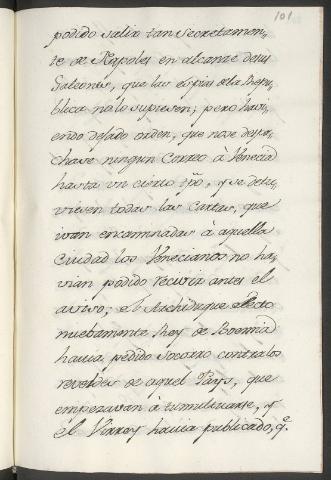 101
podido salir tan Secretamen-
te de Napoles en alcanze de sus
Galeones, que las espias de la Repu-
blica no lo supiesen; pero havi-
endo dejado orden, que no se despa-
chase ningun Correo à Venecia
hasta un cierto tpō, y se detu-
viesen todas las Cartas, que
ivan encaminadas à aquella
Ciudad los Venecianos no ha-
vian podido recivir antes el
aviso; el Archiduque electo
nuebamente Rey de Boemia
havia pedido socorro contra los
reveldes de aquel Pays, que
empezavan à tumultuarse, y
el Virrey havia publicado, q.ᵉ